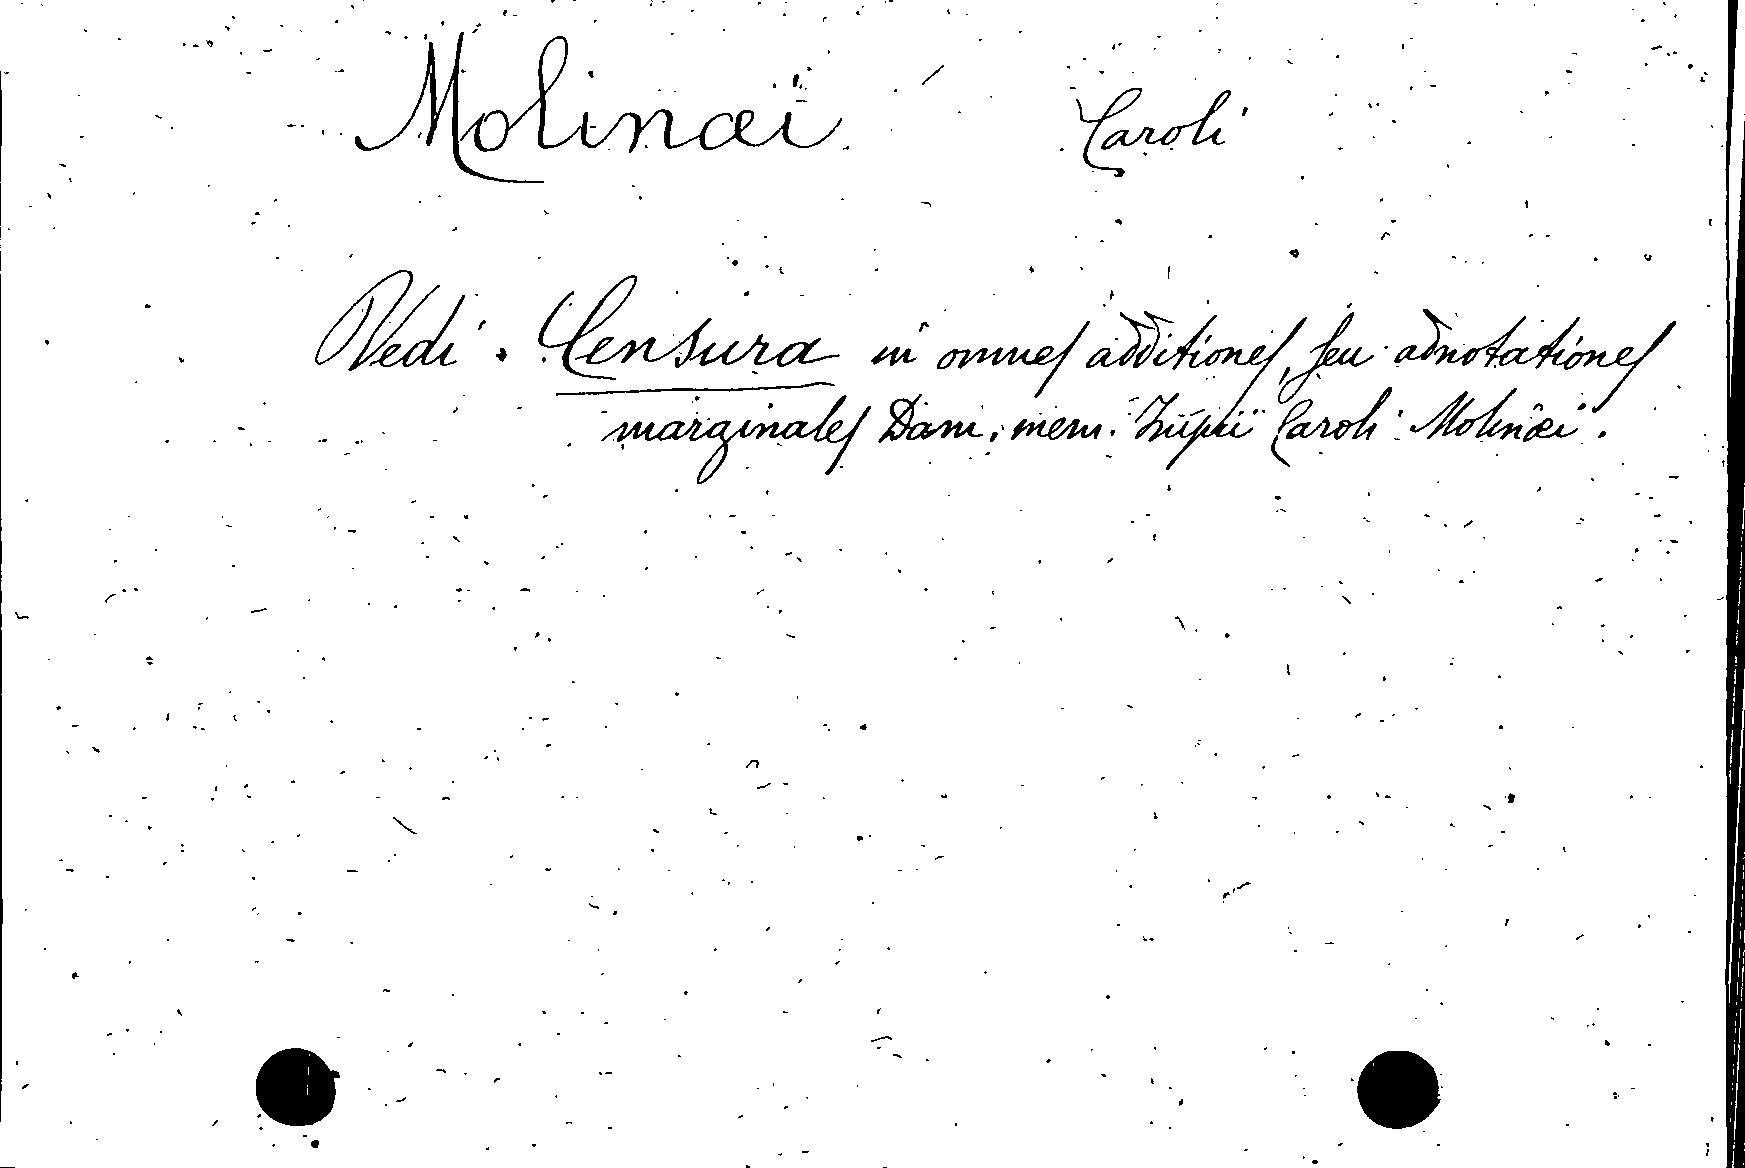 Molinæi Caroli
Vedi. Censura in omnes additiones, seu adnotationes
marginales Dam. mem. Impii Caroli Molinæi.